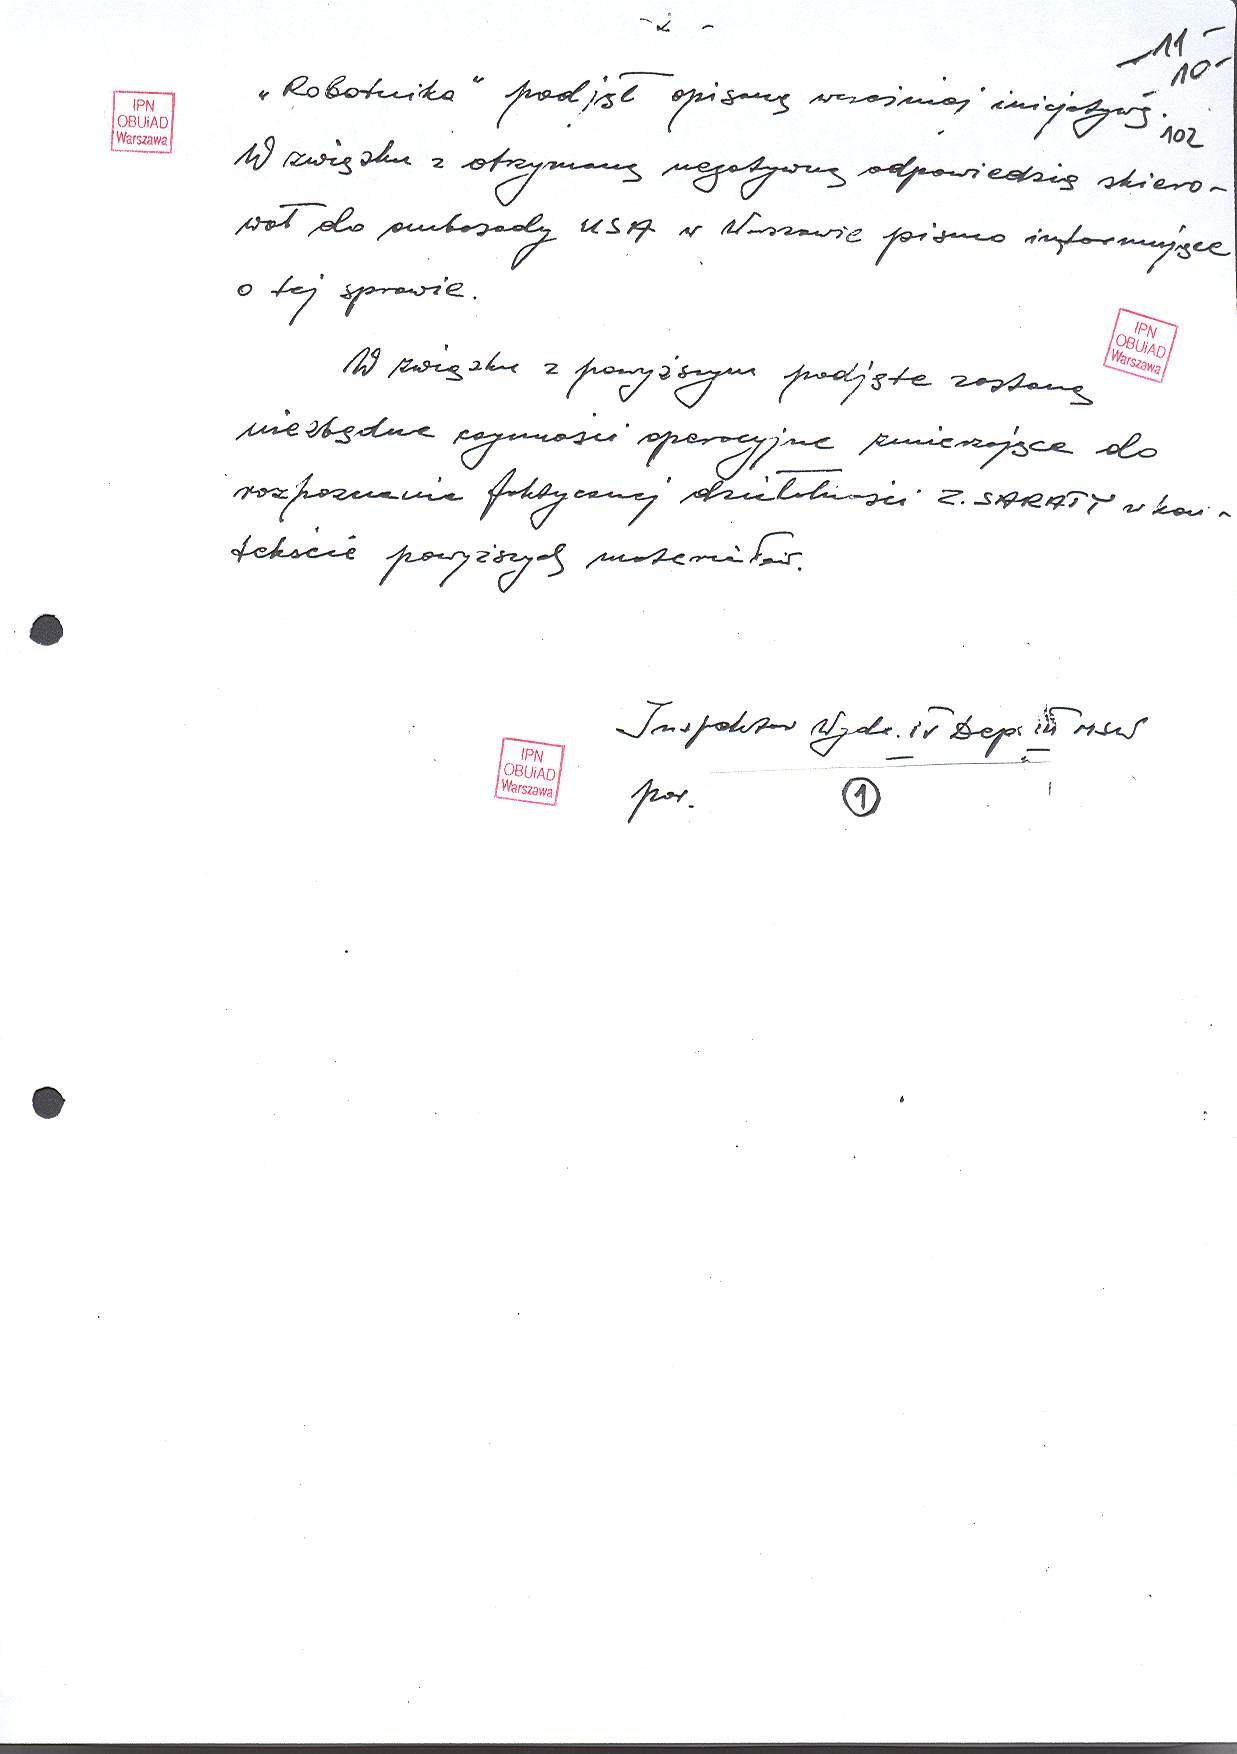 - 2 -
11 -
10 -
102
„Robotnika" podjął opisaną wcześniej inicjatywę.
W związku z otrzymaną negatywną odpowiedzią skiero-
wał do ambasady USA w Warszawie pismo informujące
o tej sprawie.
W związku z powyższym podjęte zostaną
niezbędne czynności operacyjne zmierzające do
rozpoznania faktycznej działalności Z. SARATY w kon-
tekście powyższych materiałów.
Inspektor Wydz. IV Dep. III MSW
por.
1
IPN
OBUiAD
Warszawa
IPN
OBUiAD
Warszawa
IPN
OBUiAD
Warszawa